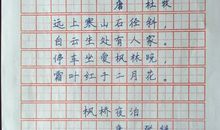 唐 杜牧
远上寒山石径斜，
白云生处有人家。
停车坐爱枫林晚，
霜叶红于二月花。
枫桥夜泊